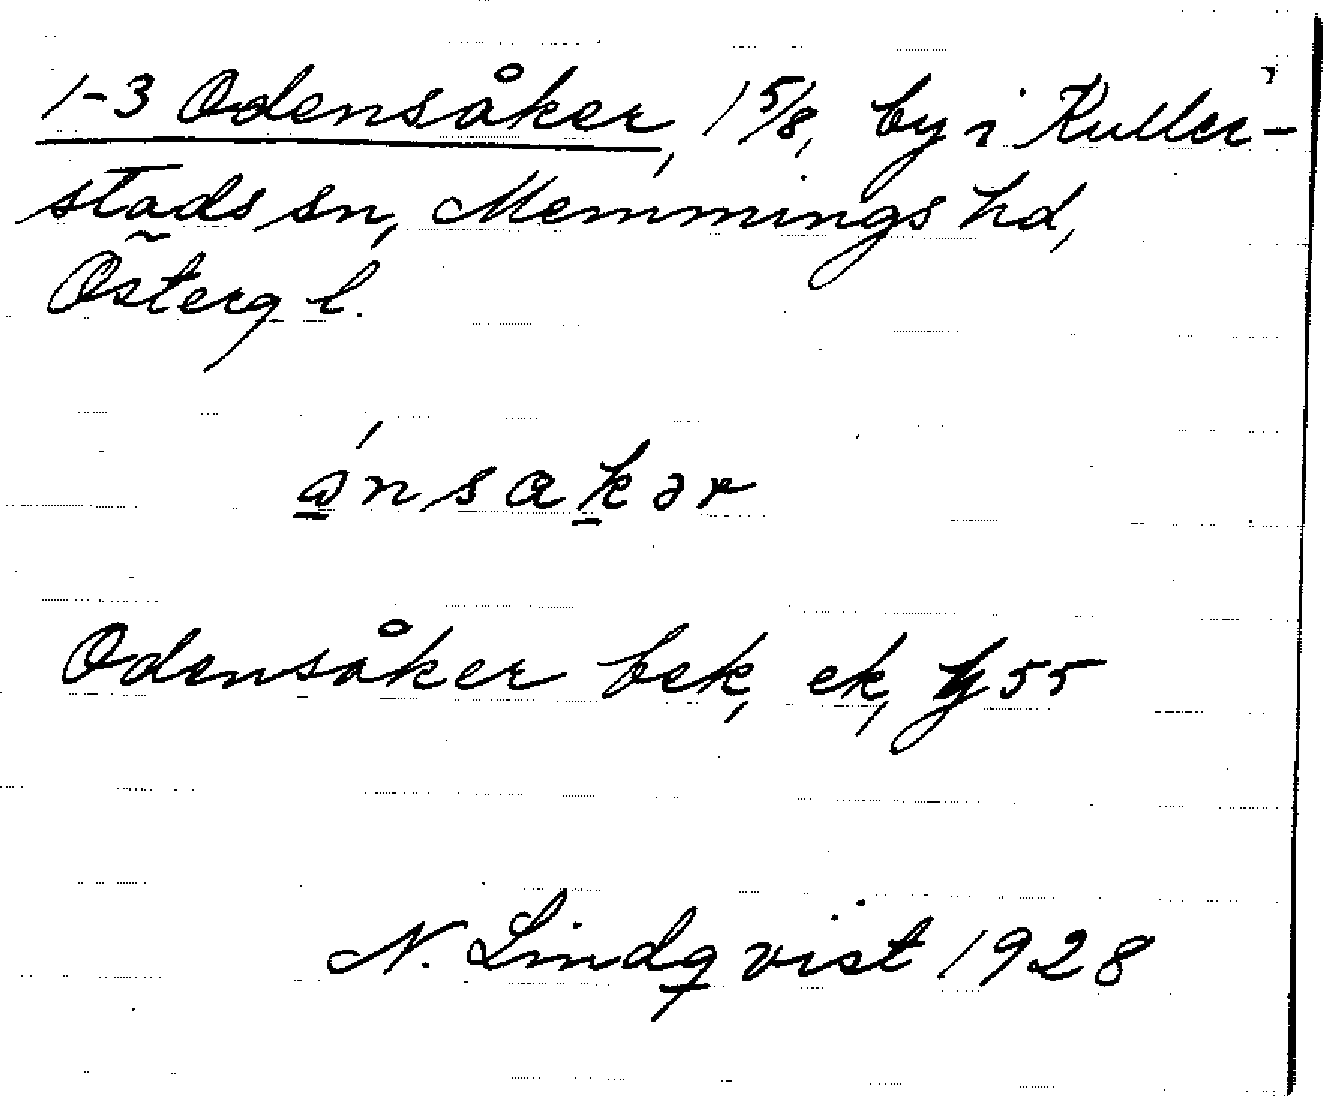 1-3 Odensåker, 1 5/8, by i Kuller-
stads sn, Memmings hd,
Österg l.
ånsakər
Odensåker bek, ek, 55
N. Lindqvist 1928